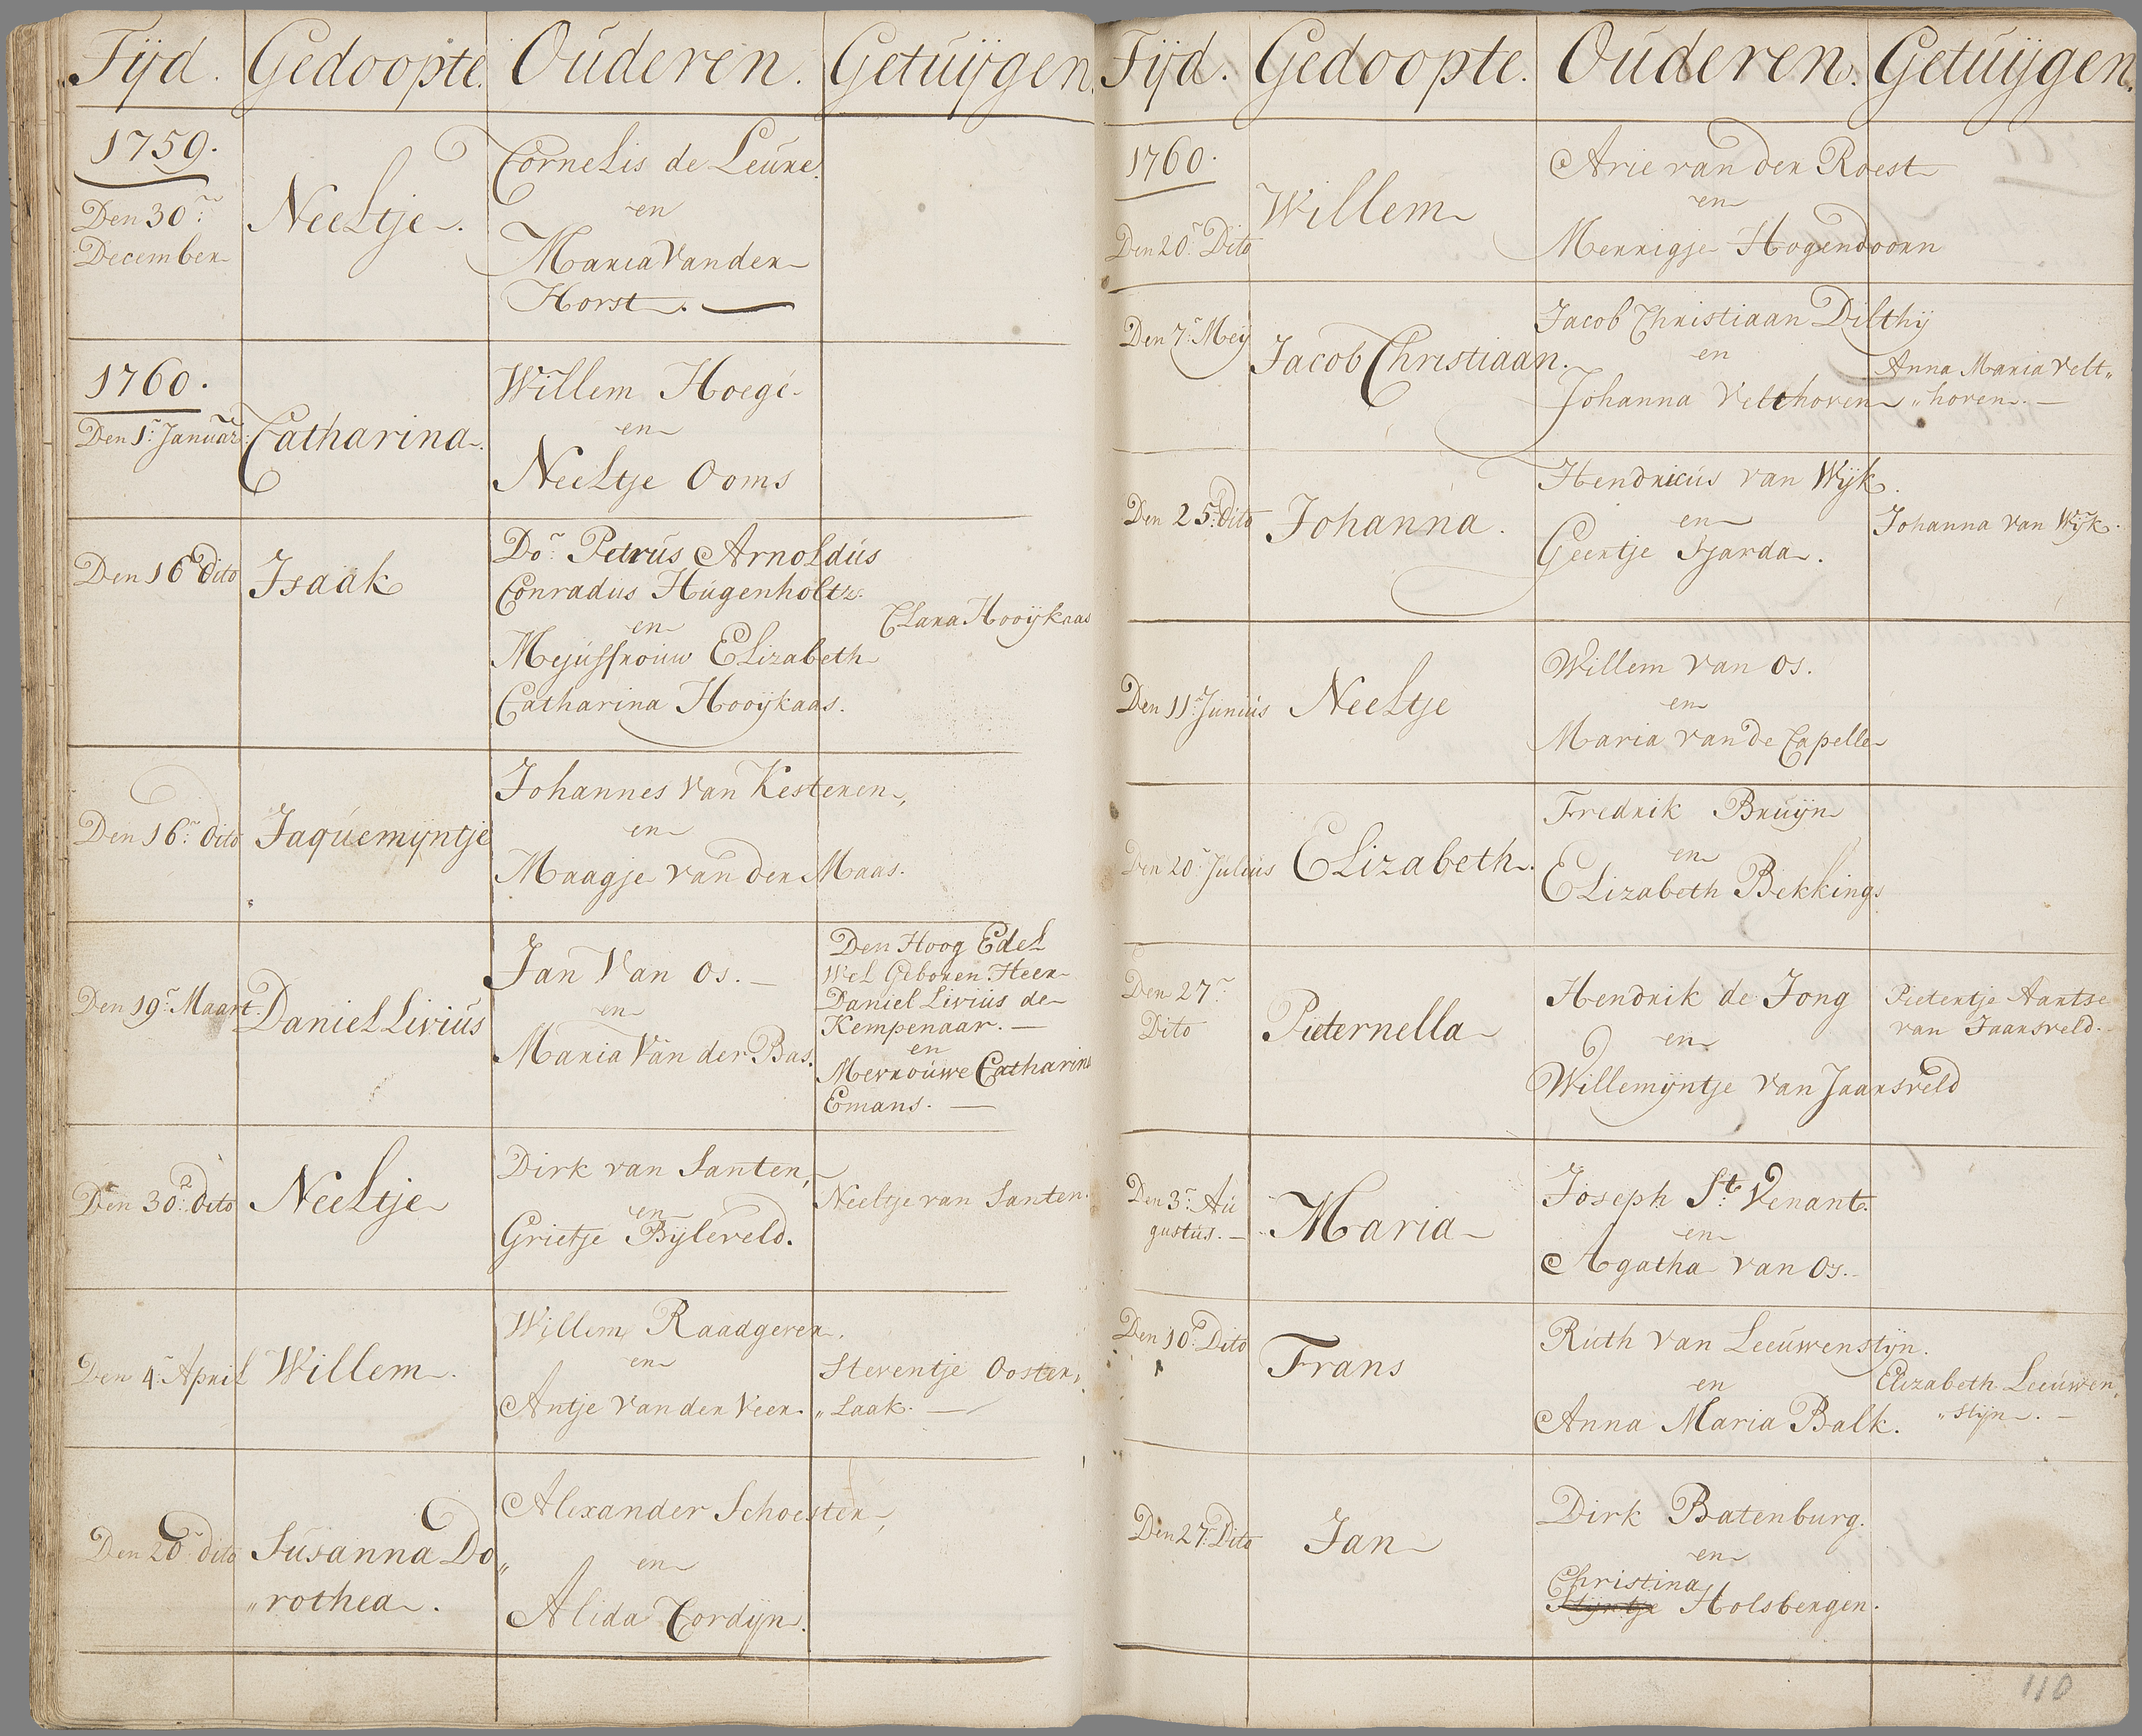 Tijd. Gedoopte. Ouderen. Getuijgen.
1759.
Den 30.en
December
Neeltje.
Cornelis de Leure.
en
Maria Vander
Horst.
1760.
Den 1.e Januar:
Catharina.
Willem Hoegé
en
Neeltje Ooms
Den 16.e dito
Isaak
Do.e Petrus Arnoldus
Conradus Hugenholtz.
en
Mejuffrouw Elizabeth
Catharina Hooijkaas.
Clara Hooijkaas
Den 16.e dito
Jaquemijntje
Johannes van Kesteren,
en
Maagje van der Maas.
Den 19.e Maart.
Daniel Livius
Jan Van Os.
en
Maria Van der Bas.
Den Hoog Edel
Wel Geboren Heer
Daniel Livius de
Kempenaar.
en
Mevrouwe Catharina
Emans.
Den 30.e dito
Neeltje
Dirk van Santen,
en
Grietje Bijleveld.
Neeltje van Santen.
Den 4.e April
Willem.
Willem Raadgever.
en
Antje van der Veer.
Steventje Ooster„
„Laak.
Den 20.e dito
Susanna Do„
„rothea.
Alexander Schoester,
en
Alida Cordijn.
Tijd. Gedoopte. Ouderen. Getuijgen.
1760.
Den 20.e Dito
Willem
Arie van der Roest
en
Merrigje Hogendoorn
Den 7.e Meij
Jacob Christiaan.
Jacob Christiaan Dilthij
en
Johanna Velthoven
Anna Maria Velt„
„hoven.
Den 25.e dito
Johanna.
Hendricus van Wijk.
en
Geertje Sjarda.
Johanna van Wijk.
Den 11.e Junius
Neeltje
Willem van Os.
en
Maria van de Capelle
Den 20.e Julius
Elizabeth.
Fredrik Bruijn
en
Elizabeth Bekkings
Den 27.e
Dito
Pieternella
Hendrik de Jong
en
Willemijntje van Jaarsveld
Pietertje Aartse
van Jaarsveld.
Den 3.e Au
gustus.
Maria
Joseph St. Venant.
en
Agatha van Os.
Den 10.e Dito
Frans
Ruth van Leeuwenstijn.
en
Anna Maria Balk.
Elizabeth Leeuwen„
„stijn.
Den 27.e Dito
Jan
Dirk Batenburg.
en
Christina
Stijntje Holsbergen.
110